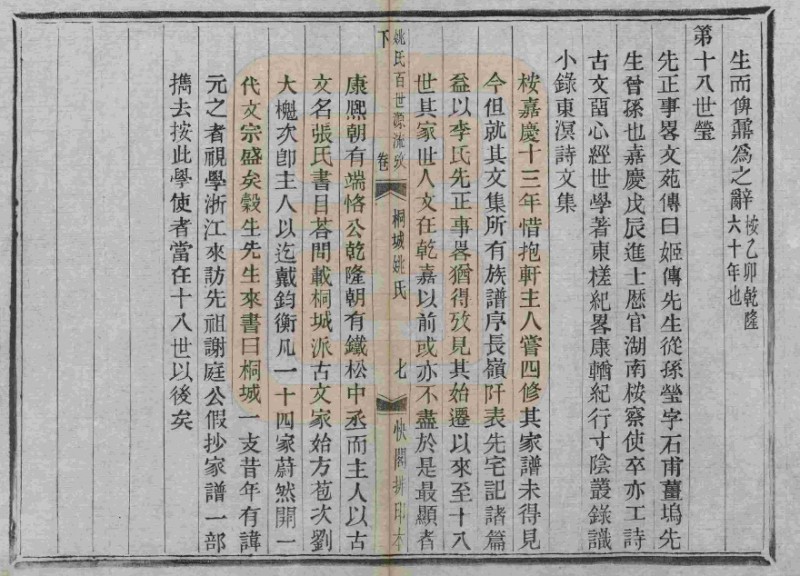 生而俾鼐為之辭按乙卯乾隆六十年也
第十八世瑩
先正事畧文苑傳曰姬傳先生從孫瑩字石甫薑塢先
生曾孫也嘉慶戊辰進士歷官湖南按察使卒亦工詩
古文留心經世學著東槎紀畧康輶紀行寸陰叢錄識
小錄東溟詩文集
桉嘉慶十三年惜抱軒主人嘗四修其家譜未得見
今但就其文集所有族譜序長嶺阡表先宅記諸篇
益以李氏先正事畧猶得攷見其始遷以來至十八
世其家世人文在乾嘉以前或亦不盡於是最顯者
姚氏百世源流攷 卷下 桐城姚氏 七 快閣排印本
康熙朝有端恪公乾隆朝有鐵松中丞而主人以古
文名張氏書目荅問載桐城派古文家始方苞次劉
大櫆次卽主人以迄戴鈞衡凡一十四家蔚然開一
代文宗盛矣穀生先生來書曰桐城一支昔年有諱
元之者視學浙江來訪先祖謝庭公假抄家譜一部
攜去按此學使者當在十八世以後矣